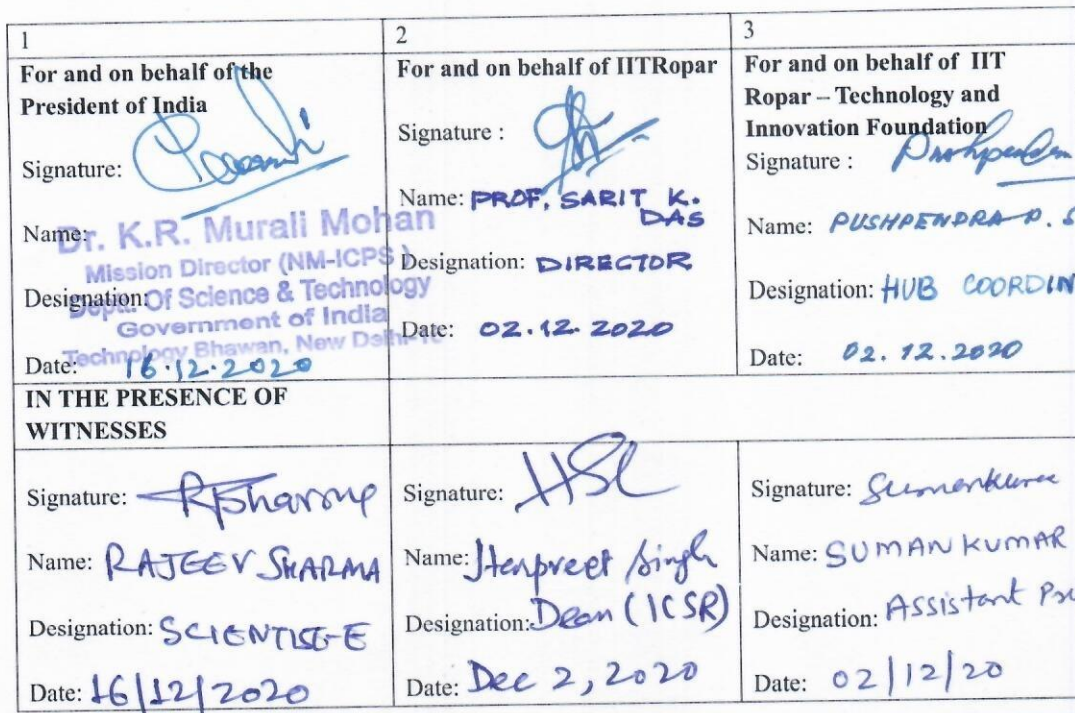 1
For and on behalf of the
President of India
Signature:
Name:
Dr. K.R. Murali Mohan
Mission Director (NM-ICPS)
Designation:
Deptt. Of Science & Technology
Government of India
Technology Bhawan, New Delhi-16
Date: 16.12.2020
2
For and on behalf of IITRopar
Signature :
Name: PROF. SARIT K.
DAS
Designation: DIRECTOR
Date: 02.12.2020
3
For and on behalf of IIT
Ropar – Technology and
Innovation Foundation
Signature :
Name: PUSHPENDRA P. S
Designation: HUB COORDIN
Date: 02.12.2020
IN THE PRESENCE OF
WITNESSES
Signature: RSharma
Name: RAJEEV SHARMA
Designation: SCIENTIST-E
Date: 16/12/2020
Signature: HSL
Name: Harpreet Singh
Designation: Dean (ICSR)
Date: Dec 2, 2020
Signature: Sumankumar
Name: SUMAN KUMAR
Designation: Assistant Pro
Date: 02/12/20